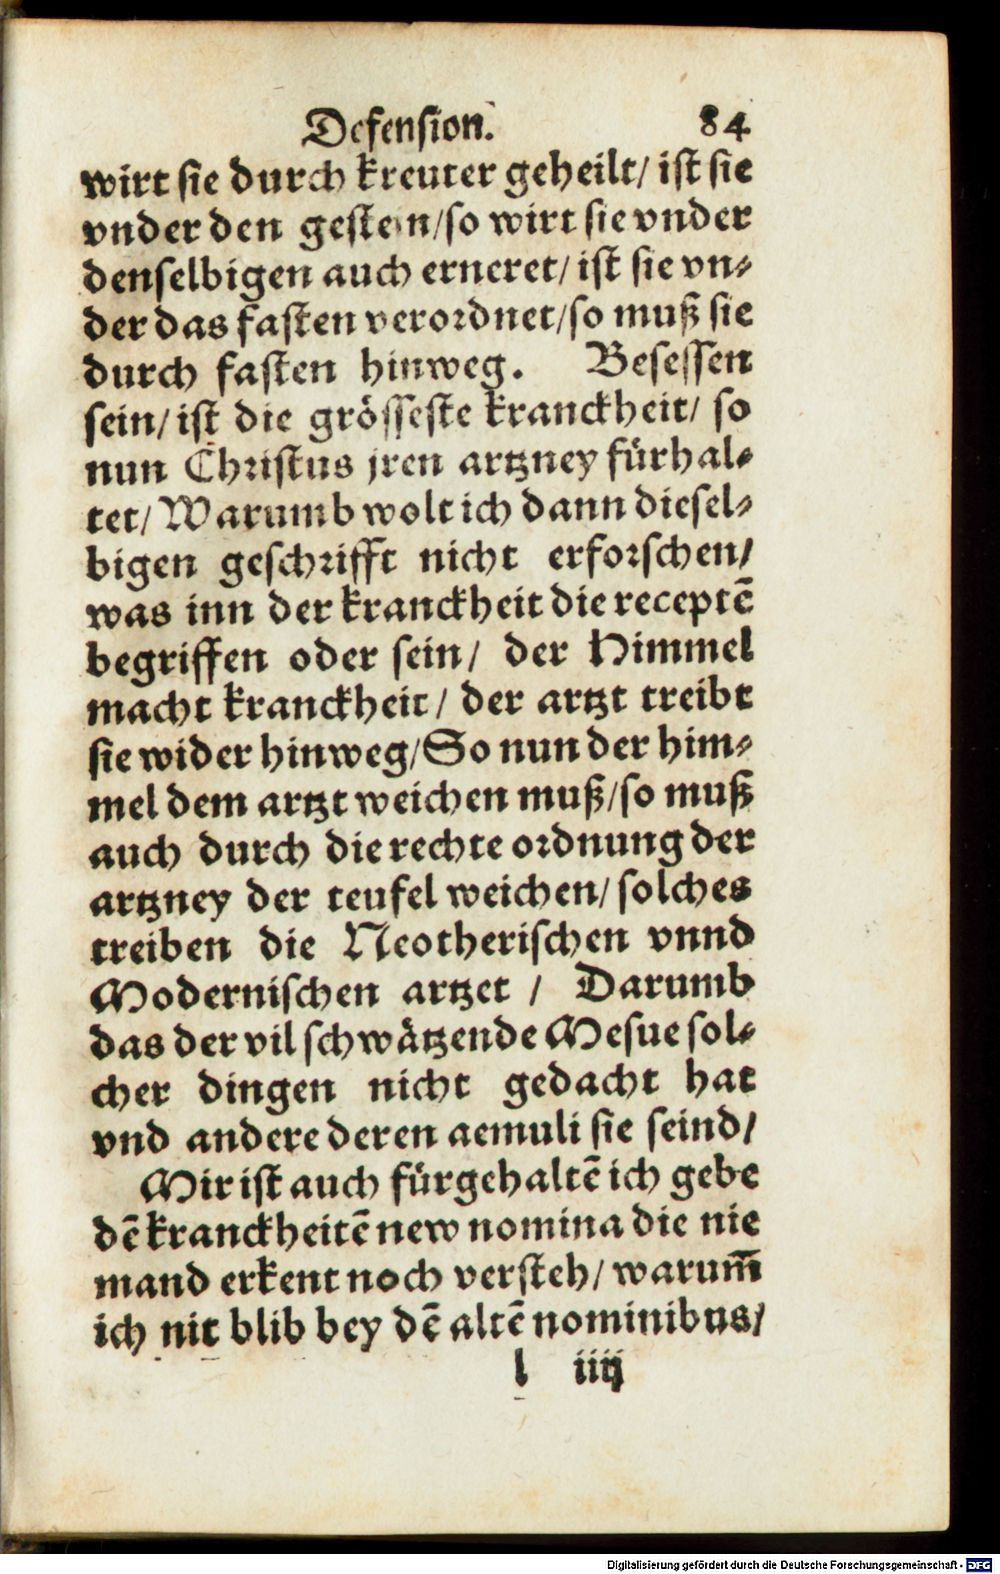 Defension. 84
wirt sie durch kreuter geheilt/ ist sie
vnder den gestein/so wirt sie vnder
denselbigen auch erneret/ ist sie vn⸗
der das fasten verordnet/so muß sie
durch fasten hinweg. Besessen
sein/ ist die grösseste kranckheit/ so
nun Christus jren artzney fürhal⸗
tet/ Warumb wolt ich dann diesel⸗
bigen geschrifft nicht erforschen/
was inn der kranckheit die receptē
begriffen oder sein/ der Himmel
macht kranckheit/ der artzt treibt
sie wider hinweg/So nun der him⸗
mel dem artzt weichen muß/so muß
auch durch die rechte ordnung der
artzney der teufel weichen/ solches
treiben die Neotherischen vnnd
Modernischen artzet / Darumb
das der vil schwätzende Mesue sol⸗
cher dingen nicht gedacht hat
vnd andere deren aemuli sie seind/
Mir ist auch fürgehaltē ich gebe
dē kranckheitē new nomina die nie
mand erkent noch versteh/ warum̄
ich nit blib bey dē altē nominibus/
l iiij
Digitalisierung gefördert durch die Deutsche Forschungsgemeinschaft - DFG